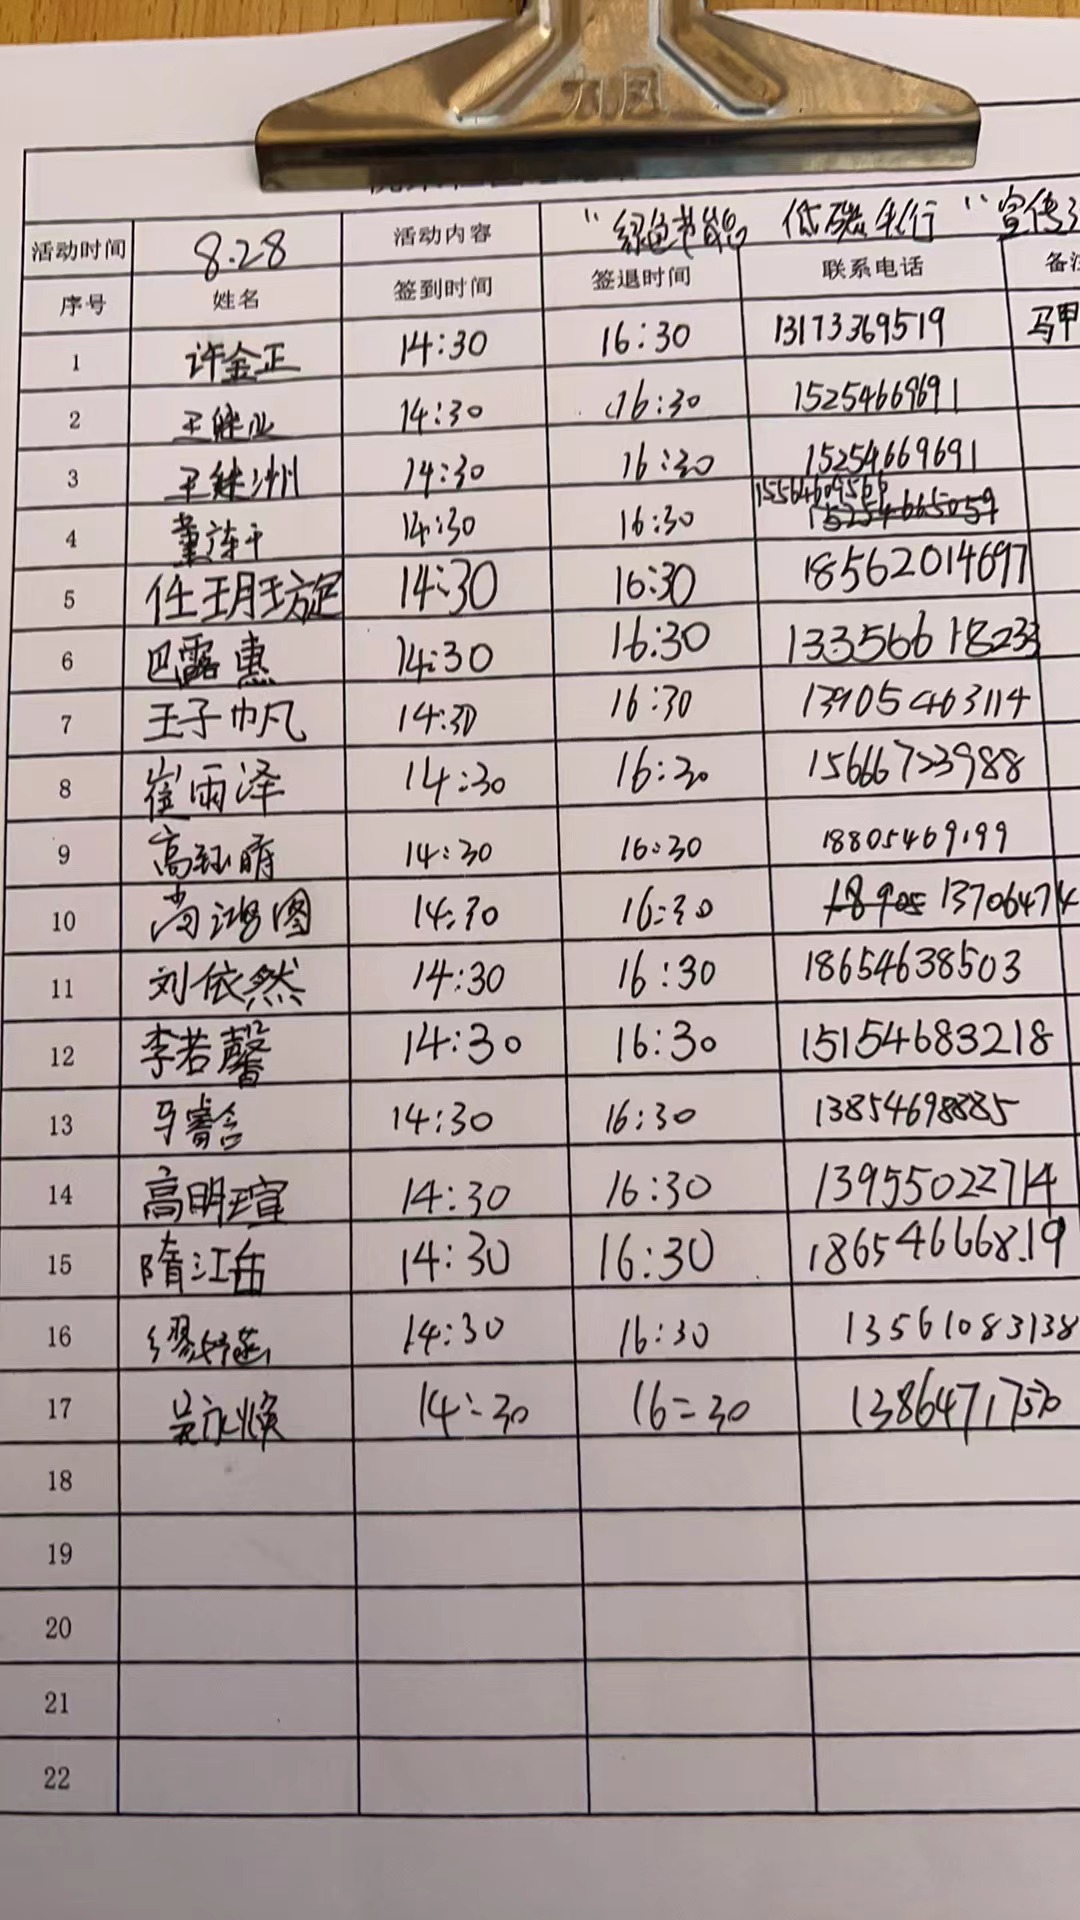 力风
活动时间 8.28 活动内容 "绿色节能 低碳先行" 宣传
序号 姓名 签到时间 签退时间 联系电话 备注
1 许金正 14:30 16:30 13173369519 马甲
2 王继业 14:30 16:30 15254669691
3 王继洲 14:30 16:30 15254669691
4 14:30 16:30
5 任玥璇 14:30 16:30 18562014697
6 巴露惠 14:30 16:30 13356618233
7 王子帆 14:30 16:30 13905463114
8 崔雨泽 14:30 16:30 15666723988
9 高钰晴 14:30 16:30 18805469199
10 尚鸿图 14:30 16:30 18905 13706474
11 刘依然 14:30 16:30 18654638503
12 李若馨 14:30 16:30 15154683218
13 马睿含 14:30 16:30 13854698885
14 高明瑄 14:30 16:30 13955022714
15 隋江岳 14:30 16:30 18654666819
16 14:30 16:30 13561083138
17 吴永焕 14:30 16:30
18
19
20
21
22